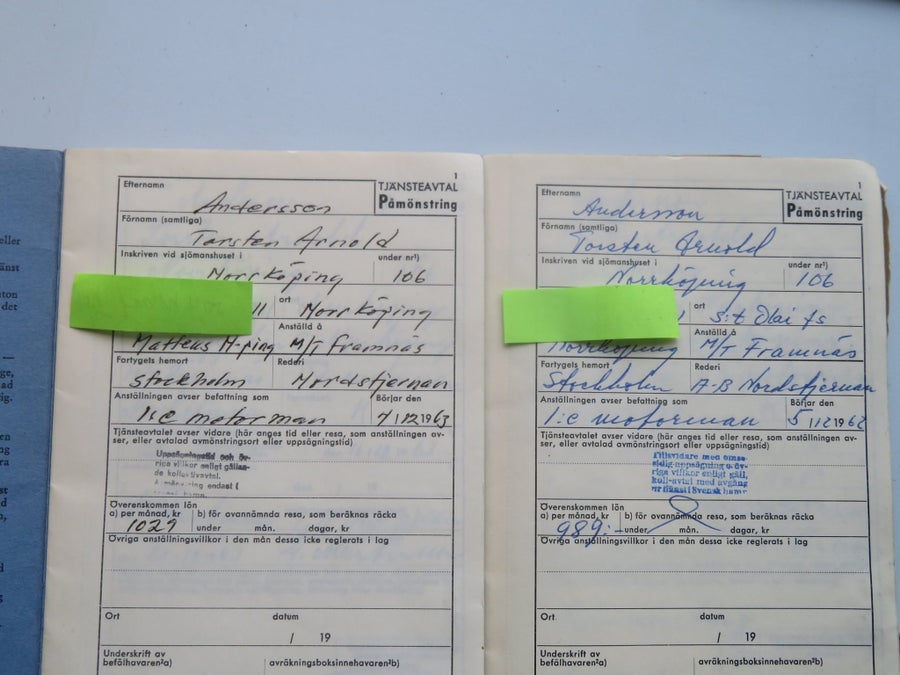 eller
änst
ton
det
—
ge,
ad
ig.
en
ng
ra
st
d
n,
d
g
1
TJÄNSTEAVTAL
Påmönstring
Efternamn
Andersson
Förnamn (samtliga)
Torsten Arnold
Inskriven vid sjömanshuset i under nr¹)
Norrköping 106
ort
Norrköping
Anställd å
Matteus N-ping M/T Framnäs
Fartygets hemort Rederi
Stockholm Nordstjernan
Anställningen avser befattning som Börjar den
1:e motorman 7/12 1963
Tjänsteavtalet avser vidare (här anges tid eller resa, som anställningen av-
ser, eller avtalad avmönstringsort eller uppsägningstid)
Uppsägningstid och öv-
riga villkor enligt gällan-
de kollektivavtal.
Överenskommen lön
a) per månad, kr b) för ovannämnda resa, som beräknas räcka
1029 under mån. dagar, kr
Övriga anställningsvillkor i den mån dessa icke reglerats i lag
Ort datum
/ 19
Underskrift av
befälhavaren²a) avräkningsboksinnehavaren²b)
1
TJÄNSTEAVTAL
Påmönstring
Efternamn
Andersson
Förnamn (samtliga)
Torsten Arnold
Inskriven vid sjömanshuset i under nr¹)
Norrköping 106
ort
S:t Olai fs
Anställd å
Norrköping M/T Framnäs
Fartygets hemort Rederi
Stockholm A-B Nordstjernan
Anställningen avser befattning som Börjar den
1:e motorman 5/12 1962
Tjänsteavtalet avser vidare (här anges tid eller resa, som anställningen av-
ser, eller avtalad avmönstringsort eller uppsägningstid)
Tillsvidare med ömse-
sidig uppsägning o. öv-
riga villkor enligt gäll.
koll-avtal med avgång
er tjänst i Svensk hamn
Överenskommen lön
a) per månad, kr b) för ovannämnda resa, som beräknas räcka
989:- under mån. dagar, kr
Övriga anställningsvillkor i den mån dessa icke reglerats i lag
Ort datum
/ 19
Underskrift av
befälhavaren²a) avräkningsboksinnehavaren²b)